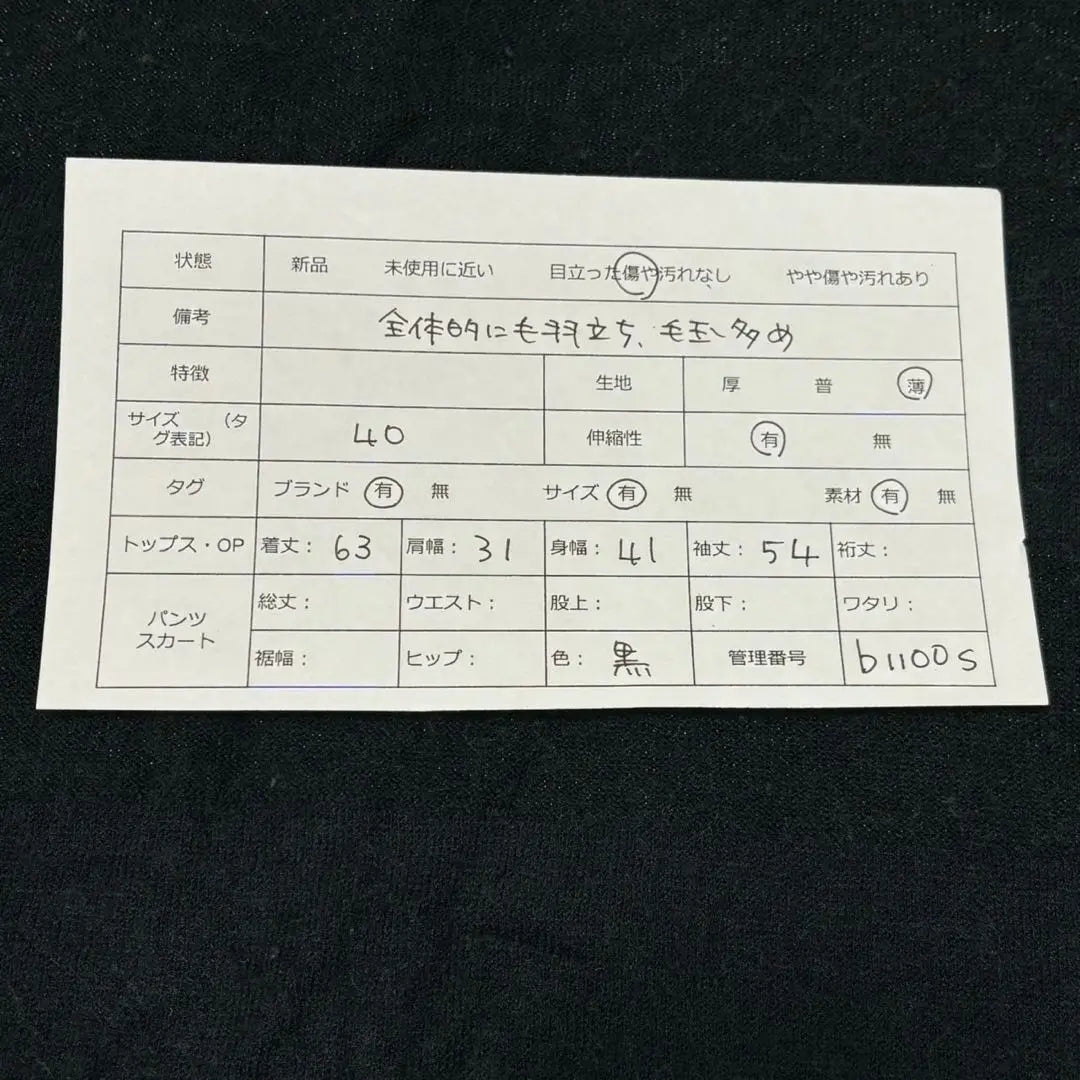 状態 新品 未使用に近い 目立った傷や汚れなし やや傷や汚れあり
備考 全体的に毛羽立ち、毛玉多め
特徴 生地 厚 普 薄
サイズ （タグ表記） 40 伸縮性 有 無
タグ ブランド 有 無 サイズ 有 無 素材 有 無
トップス・OP 着丈： 63 肩幅： 31 身幅： 41 袖丈： 54 裄丈：
パンツ スカート 総丈： ウエスト： 股上： 股下： ワタリ：
裾幅： ヒップ： 色： 黒 管理番号 b1100s